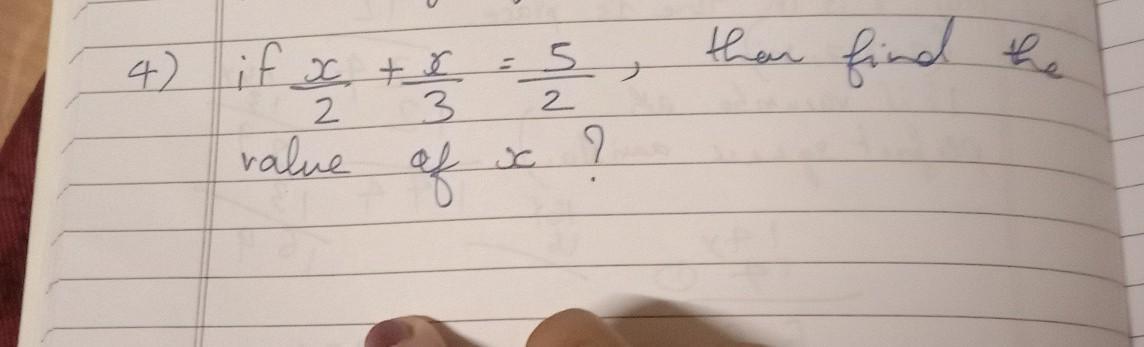 4) if x/2 + x/3 = 5/2, then find the
value of x ?